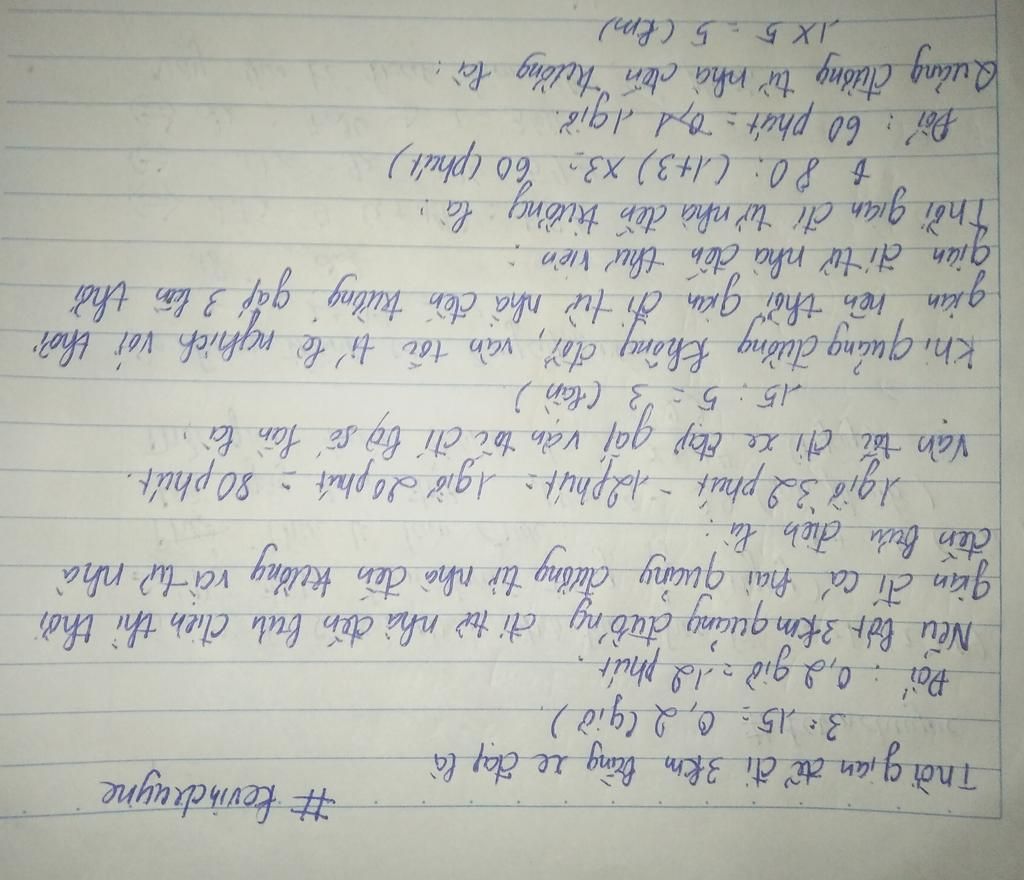 # kevindruyne
Thời gian để đi 3km bằng xe đạp là
3 : 15 = 0,2 (giờ)
Đổi : 0,2 giờ = 12 phút.
Nếu bớt 3km quãng đường đi từ nhà đến bưu điện thì thời
gian đi cả hai quãng đường từ nhà đến trường và từ nhà
đến bưu điện là :
1giờ 32 phút - 12phút = 1giờ 20phút = 80phút.
Vận tốc đi xe đạp gấp vận tốc đi bộ số lần là :
15 : 5 = 3 (lần)
Khi quãng đường không đổi, vận tốc tỉ lệ nghịch với thời
gian nên thời gian đi từ nhà đến trường gấp 3 lần thời
gian đi từ nhà đến thư viện :
Thời gian đi từ nhà đến trường là :
80 : (1+3) x3 = 60 (phút)
Đổi : 60 phút = 1giờ.
Quãng đường từ nhà đến trường là :
1 x 5 = 5 (km)